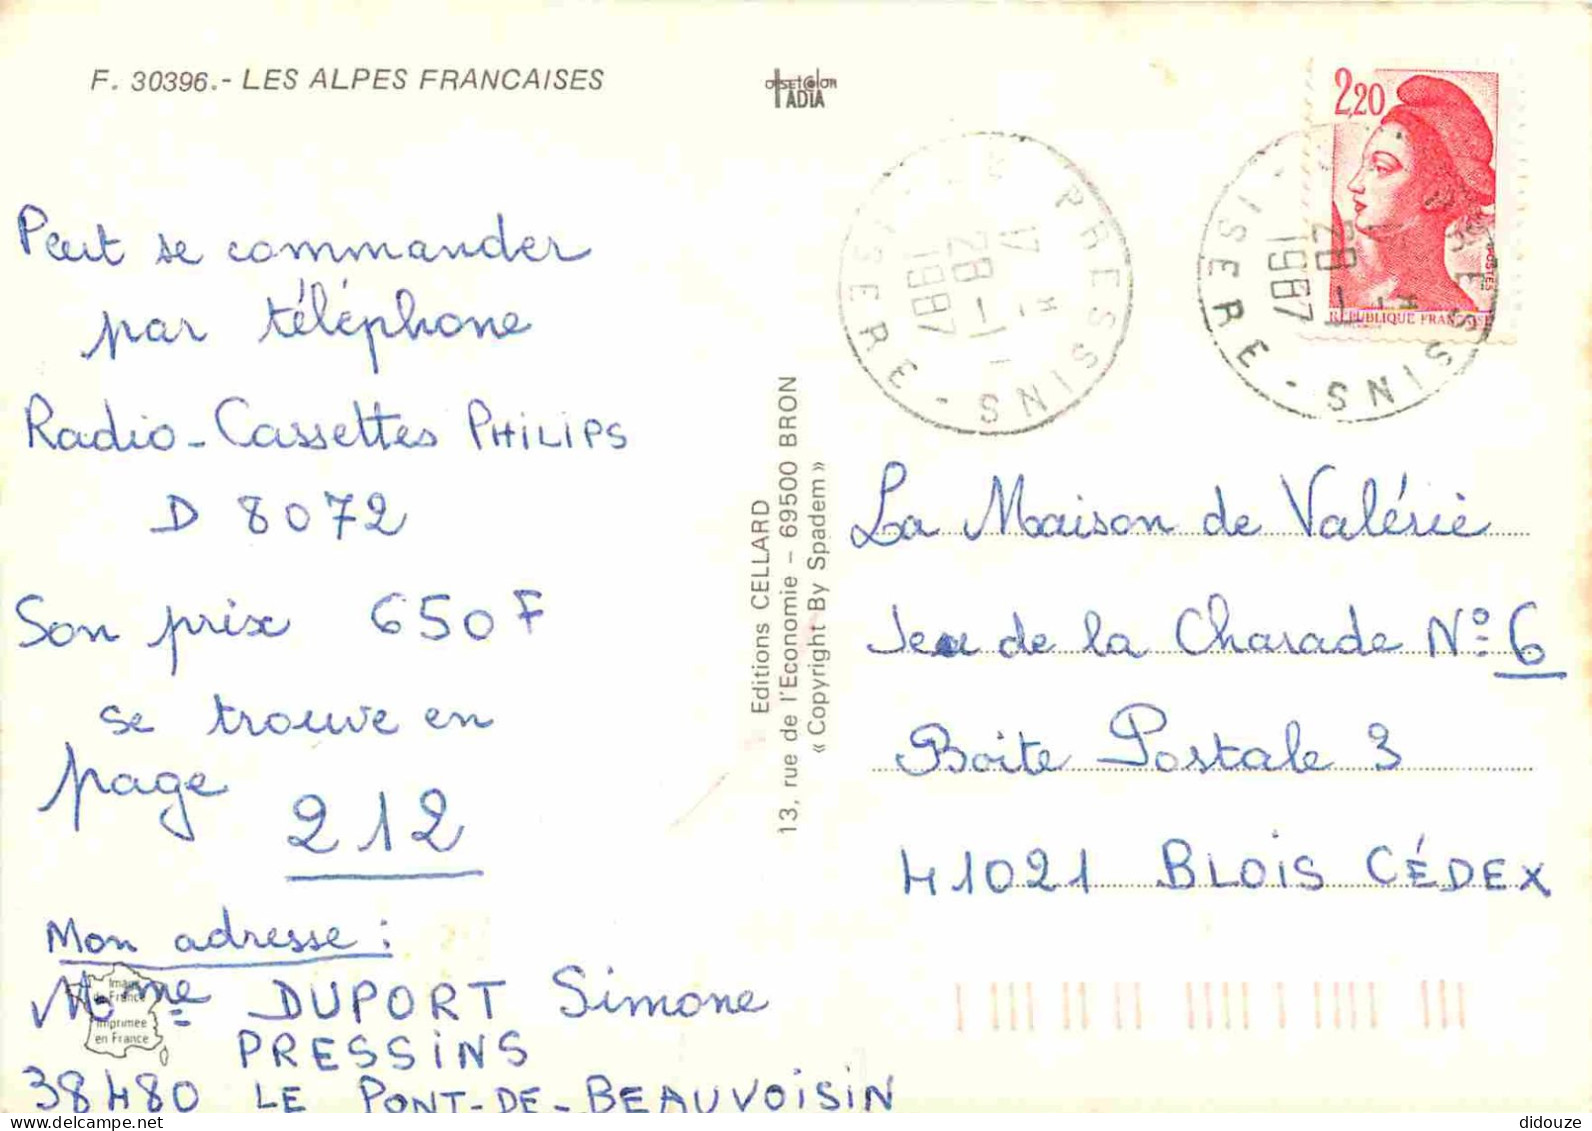 F. 30396.- LES ALPES FRANCAISES
offsetcolor
IADIA
Peut se commander
par téléphone
Radio-Cassettes PHILIPS
D 8072
Son prix 650F
se trouve en
page 212
Mon adresse :
Mme DUPORT Simone
PRESSINS
38480 LE PONT-DE-BEAUVOISIN
Image
de France
Imprimée
en France
Editions CELLARD
13, rue de l'Economie – 69500 BRON
« Copyright By Spadem »
PRESSINS - ISERE
17 H
28 -1
1987
PRESSINS - ISERE
28 -1
1987
2,20
POSTES
REPUBLIQUE FRANÇAISE
La Maison de Valérie
Jeu de la Charade N° 6
Boite Postale 3
41021 BLOIS CÉDEX
didouze